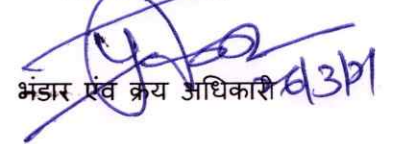 भंडार एंव क्रय अधिकारी 6/3/21